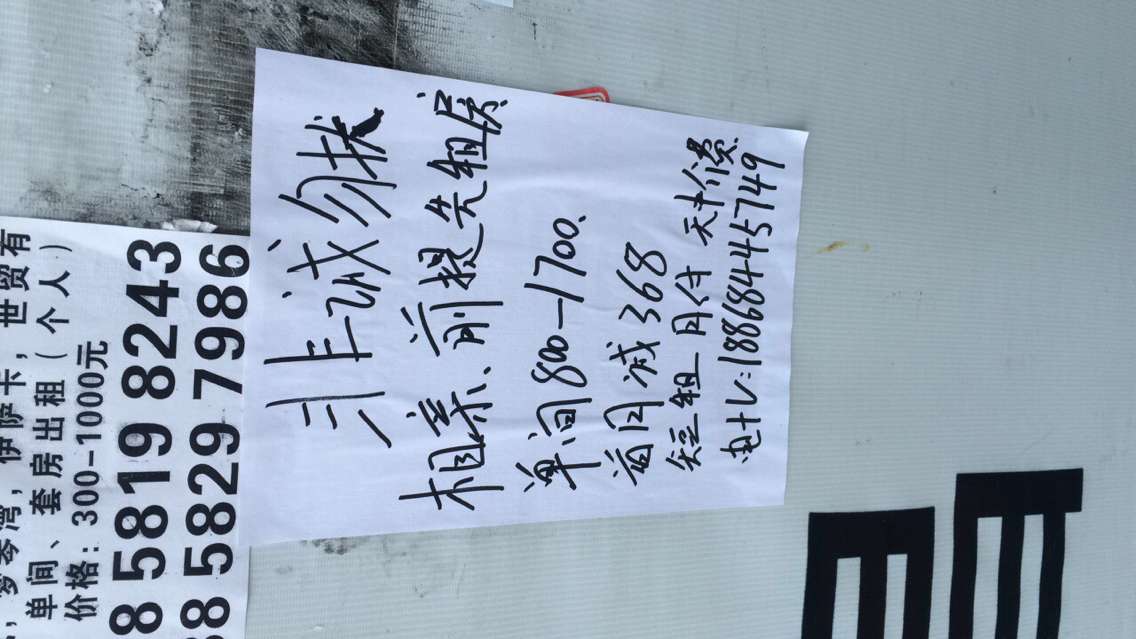 罗琴湾，伊萨卡，世贸有
单间、套房出租（个人）
价格：300-1000元
8 5819 8243
38 5829 7986
非诚勿扰
相亲、前提先租房
单间800-1700、
首月减368
短租 月付 无中介费
电+V:18868445749